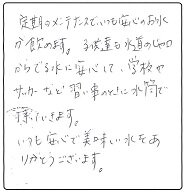 定期のメンテナンスでいつも安心のお水
が飲めます。子供達も水道のじゃ口
からでる水に安心して、学校や
サッカーなど習い事のときに水筒で
持っていきます。
いつも安心で美味しい水をあ
りがとうございます。